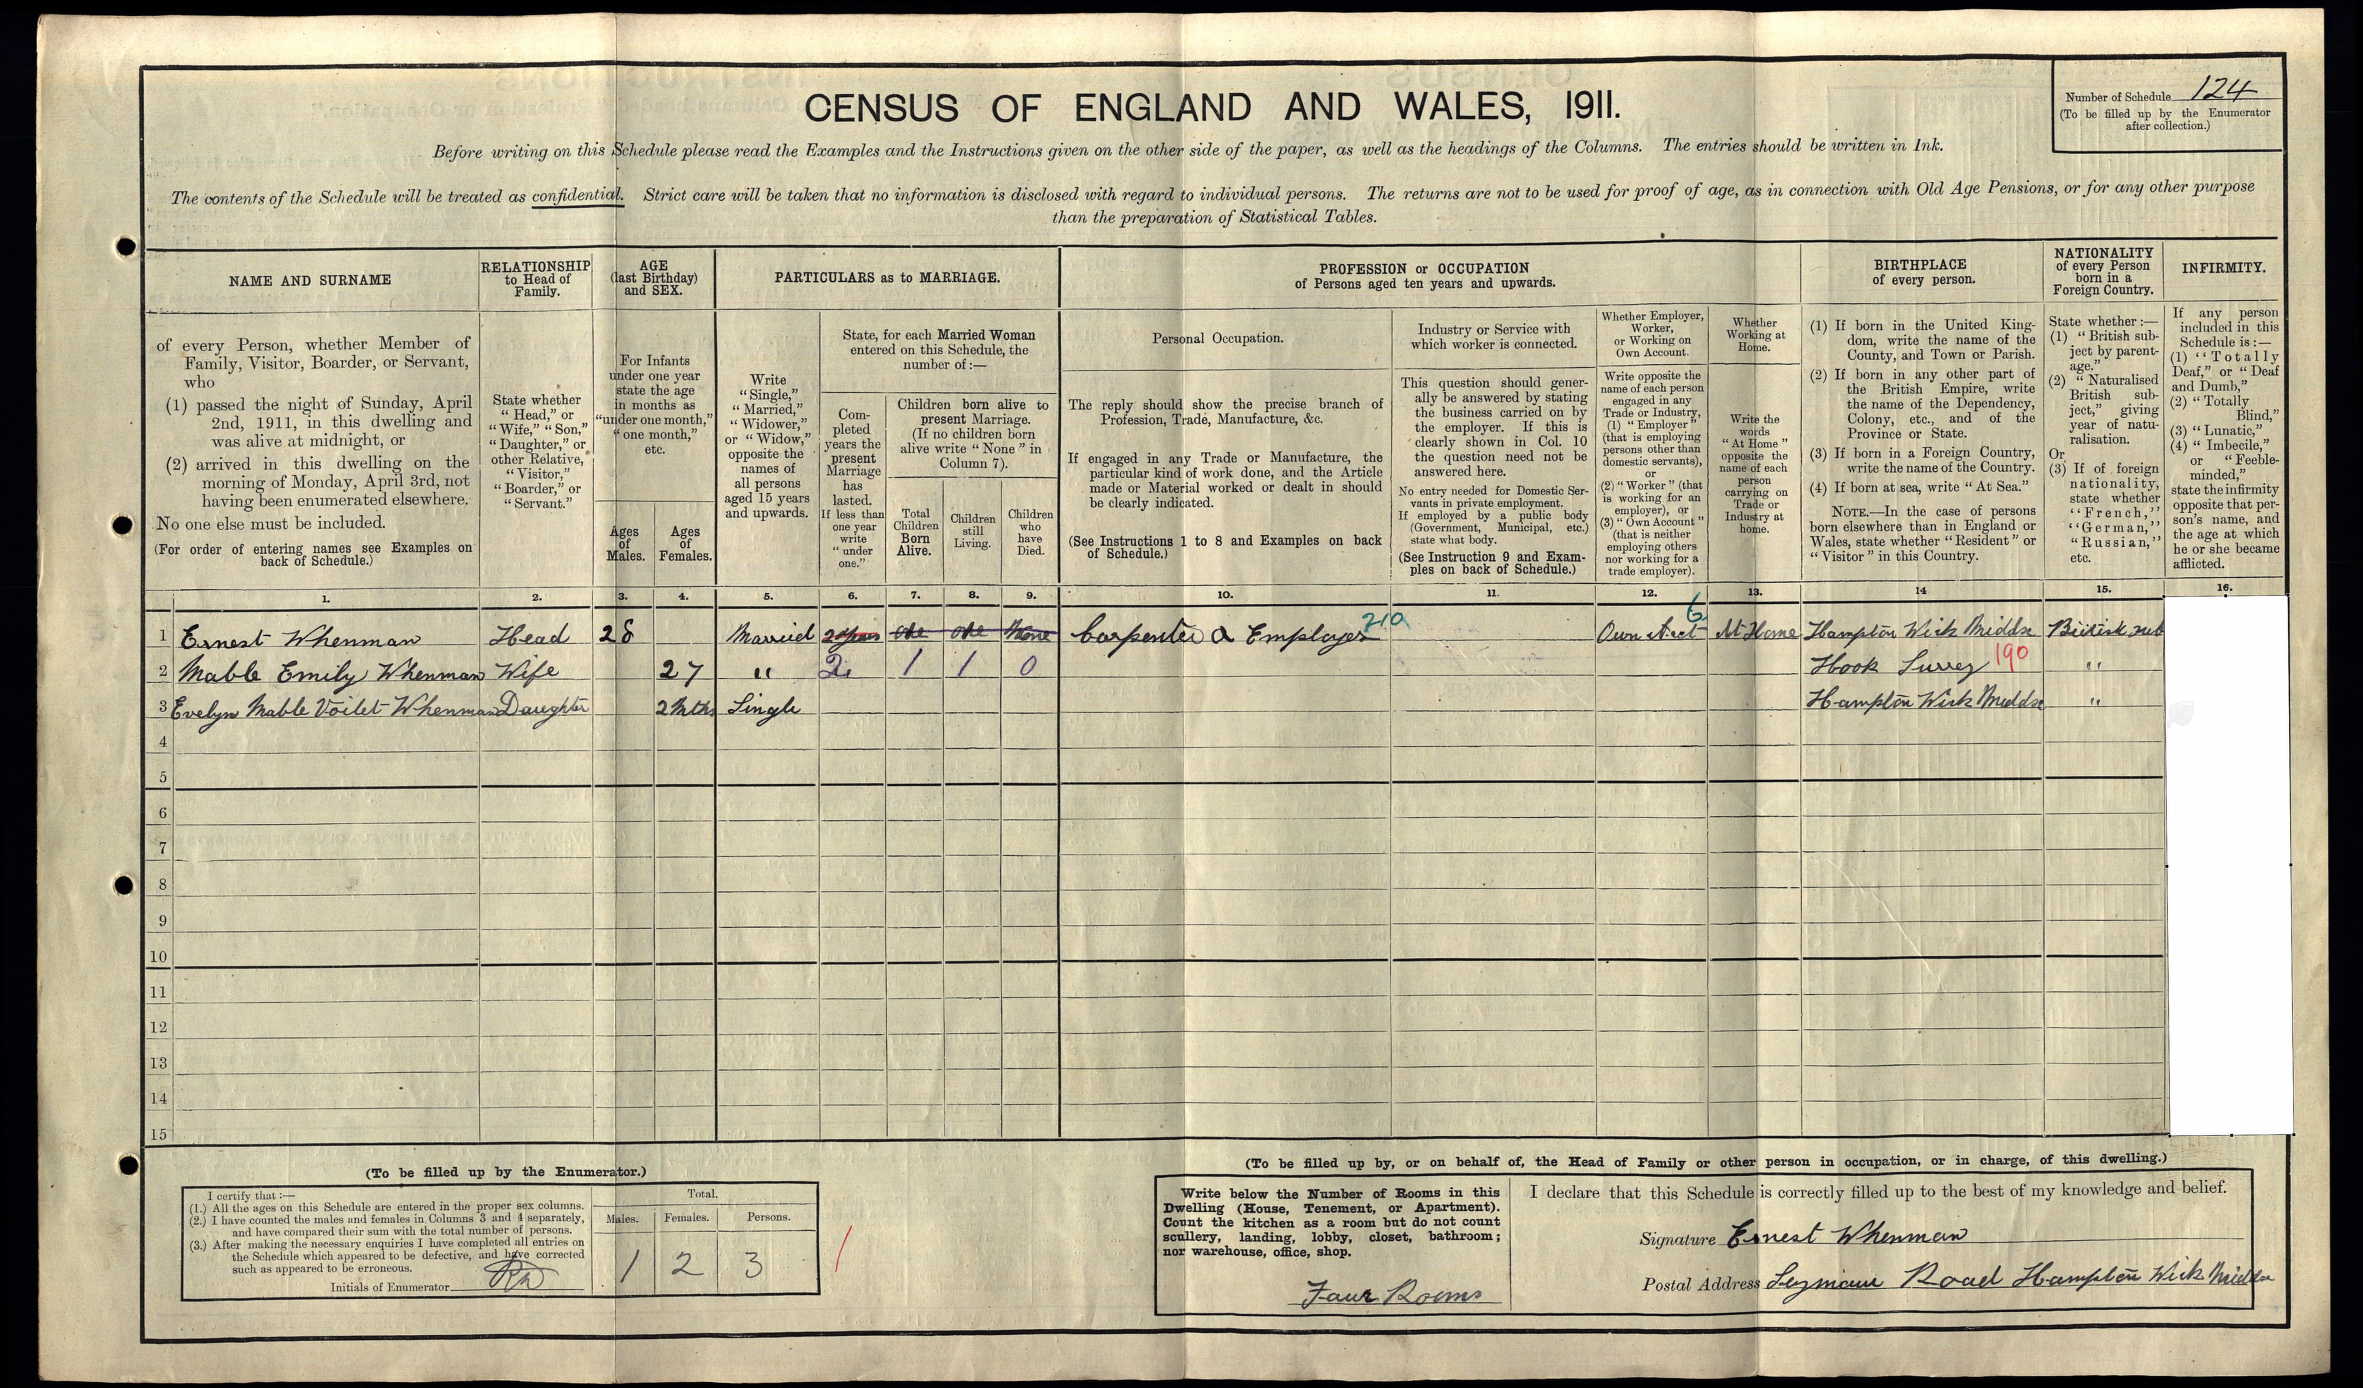 CENSUS OF ENGLAND AND WALES, 1911.
Number of Schedule 124
(To be filled up by the Enumerator
after collection.)
Before writing on this Schedule please read the Examples and the Instructions given on the other side of the paper, as well as the headings of the Columns. The entries should be written in Ink.
The contents of the Schedule will be treated as confidential. Strict care will be taken that no information is disclosed with regard to individual persons. The returns are not to be used for proof of age, as in connection with Old Age Pensions, or for any other purpose
than the preparation of Statistical Tables.
NAME AND SURNAME
of every Person, whether Member of
Family, Visitor, Boarder, or Servant,
who
(1) passed the night of Sunday, April
2nd, 1911, in this dwelling and
was alive at midnight, or
(2) arrived in this dwelling on the
morning of Monday, April 3rd, not
having been enumerated elsewhere.
No one else must be included.
(For order of entering names see Examples on
back of Schedule.)
RELATIONSHIP
to Head of
Family.
State whether
"Head," or
"Wife," "Son,"
"Daughter," or
other Relative,
"Visitor,"
"Boarder," or
"Servant."
AGE
(last Birthday)
and SEX.
For Infants
under one year
state the age
in months as
"under one month,"
"one month,"
etc.
Ages
of
Males.
Ages
of
Females.
PARTICULARS as to MARRIAGE.
Write
"Single,"
"Married,"
"Widower,"
or "Widow,"
opposite the
names of
all persons
aged 15 years
and upwards.
State, for each Married Woman
entered on this Schedule, the
number of:—
Com-
pleted
years the
present
Marriage
has
lasted.
If less than
one year
write
"under
one."
Children born alive to
present Marriage.
(If no children born
alive write "None" in
Column 7).
Total
Children
Born
Alive.
Children
still
Living.
Children
who
have
Died.
PROFESSION or OCCUPATION
of Persons aged ten years and upwards.
Personal Occupation.
The reply should show the precise branch of
Profession, Trade, Manufacture, &c.
If engaged in any Trade or Manufacture, the
particular kind of work done, and the Article
made or Material worked or dealt in should
be clearly indicated.
(See Instructions 1 to 8 and Examples on back
of Schedule.)
Industry or Service with
which worker is connected.
This question should gener-
ally be answered by stating
the business carried on by
the employer. If this is
clearly shown in Col. 10
the question need not be
answered here.
No entry needed for Domestic Ser-
vants in private employment.
If employed by a public body
(Government, Municipal, etc.)
state what body.
(See Instruction 9 and Exam-
ples on back of Schedule.)
Whether Employer,
Worker,
or Working on
Own Account.
Write opposite the
name of each person
engaged in any
Trade or Industry,
(1) "Employer"
(that is employing
persons other than
domestic servants),
or
(2) "Worker" (that
is working for an
employer), or
(3) "Own Account"
(that is neither
employing others
nor working for a
trade employer).
Whether
Working at
Home.
Write the
words
"At Home"
opposite the
name of each
person
carrying on
Trade or
Industry at
home.
BIRTHPLACE
of every person.
(1) If born in the United King-
dom, write the name of the
County, and Town or Parish.
(2) If born in any other part of
the British Empire, write
the name of the Dependency,
Colony, etc., and of the
Province or State.
(3) If born in a Foreign Country,
write the name of the Country.
(4) If born at sea, write "At Sea."
NOTE.—In the case of persons
born elsewhere than in England or
Wales, state whether "Resident" or
"Visitor" in this Country.
NATIONALITY
of every Person
born in a
Foreign Country.
State whether:—
(1) "British sub-
ject by parent-
age."
(2) "Naturalised
British sub-
ject," giving
year of natu-
ralisation.
Or
(3) If of foreign
nationality,
state whether
"French,"
"German,"
"Russian,"
etc.
INFIRMITY.
If any person
included in this
Schedule is:—
(1) "Totally
Deaf," or "Deaf
and Dumb,"
(2) "Totally
Blind,"
(3) "Lunatic,"
(4) "Imbecile,"
or "Feeble-
minded,"
state the infirmity
opposite that per-
son's name, and
the age at which
he or she became
afflicted.
1. 2. 3. 4. 5. 6. 7. 8. 9. 10. 11. 12. 13. 14 15. 16.
210 6
1 Ernest Whenman Head 28 Married 2 years one one None Carpenter & Employer Own Acct At Home Hampton Wick Middx British sub
2 Mable Emily Whenman Wife 27 " 2 1 1 0 Hook Surrey 190 "
3 Evelyn Mable Voilet Whenman Daughter 2 Mths Single Hampton Wick Middx "
4
5
6
7
8
9
10
11
12
13
14
15
(To be filled up by the Enumerator.)
I certify that:—
(1.) All the ages on this Schedule are entered in the proper sex columns.
(2.) I have counted the males and females in Columns 3 and 4 separately,
and have compared their sum with the total number of persons.
(3.) After making the necessary enquiries I have completed all entries on
the Schedule which appeared to be defective, and have corrected
such as appeared to be erroneous.
Initials of Enumerator
Total.
Males. Females. Persons.
1 2 3
/
(To be filled up by, or on behalf of, the Head of Family or other person in occupation, or in charge, of this dwelling.)
Write below the Number of Rooms in this
Dwelling (House, Tenement, or Apartment).
Count the kitchen as a room but do not count
scullery, landing, lobby, closet, bathroom;
nor warehouse, office, shop.
Four Rooms
I declare that this Schedule is correctly filled up to the best of my knowledge and belief.
Signature Ernest Whenman
Postal Address Seymour Road Hampton Wick Middx